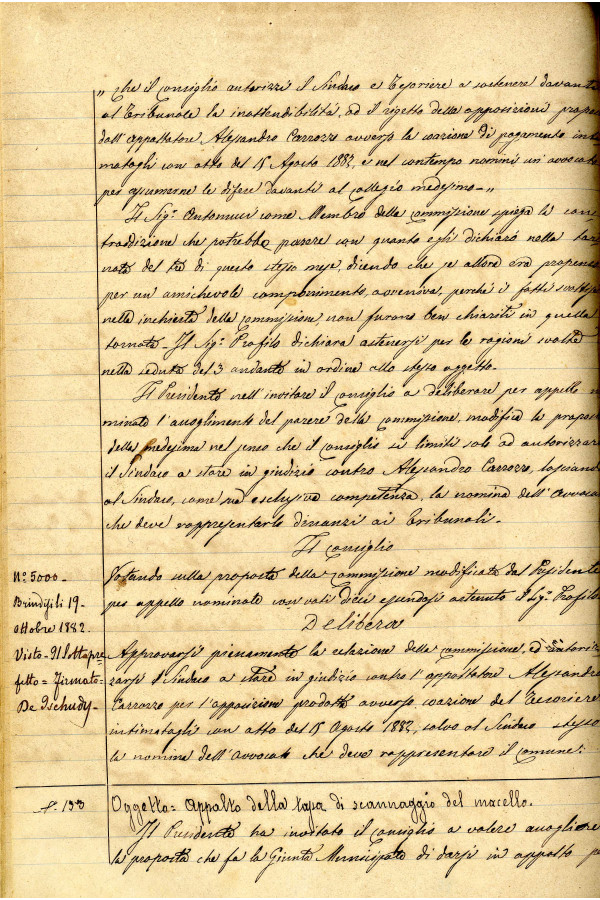 „ che il Consiglio autorizzi il Sindaco e Tesoriere a sostenere davanti
al Tribunale la inattendibilità, ed il rigetto delle opposizioni
dall'appaltatore Alessandro Carrozzo avverso la coazione di pagamento inti
matagli con atto del 15 Agosto 1882, e nel contempo nomini un avvocato
per assumerne le difese davanti al collegio medesimo-„
Il Sig.r Antonucci come Membro della Commissione spiega la con
traddizione che potrebbe parere con quanto egli dichiarò nella tor
nata del tre di questo stesso mese, dicendo che se allora era propenso
per un amichevole componimento, avveniva, perchè i fatti
nella inchiesta della Commissione, non furono ben chiariti in quella
tornata. Il Sig.r Profilo dichiara astenersi per le ragioni svolte
nella seduta del 3 andante in ordine allo stesso oggetto.
Il Presidente nell'invitare il Consiglio a deliberare per appello no
minale l'accoglimento del parere della Commissione, modifica la proposta
della medesima nel senso che il Consiglio si limiti solo ad autorizzare
il Sindaco a stare in giudizio contro Alessandro Carrozzo, lasciando
al Sindaco, come sua esclusiva competenza, la nomina dell'Avvocato
che deve rappresentarlo dinanzi ai Tribunali.
Il Consiglio
Votando sulla proposta della Commissione modificata dal Presidente
per appello nominale con voti dieci essendosi astenuto il Sig.r Profilo
Delibera
Approvarsi pienamente la relazione della Commissione, ed autoriz
zarsi il Sindaco a stare in giudizio contro l'appaltatore Alessandro
Carrozzo per l'opposizione prodotta avverso coazione del Tesoriere
intimatagli con atto del 15 Agosto 1882, salvo al Sindaco stesso
la nomina dell'Avvocato che deve rappresentare il Comune.
N.o 5000-
Brindisi li 19-
Ottobre 1882-
Visto-Il Sottopre
fetto-Firmato-
De Tschudy-
N. 153
Oggetto= Appalto della tassa di scannaggio del macello.
Il Presidente ha invitato il Consiglio a volere accogliere
la proposta che fa la Giunta Municipale di darsi in appalto pe